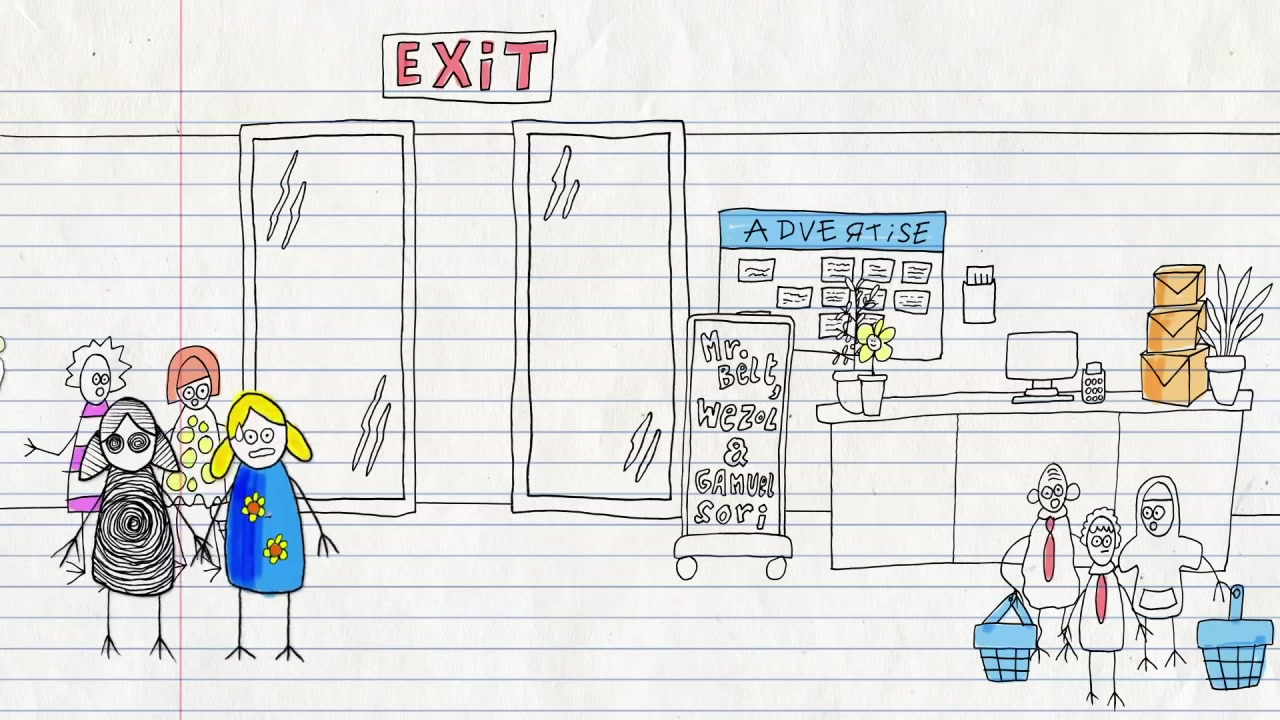 EXiT
ADVERTiSE
Mr.
Belt,
Wezol
&
GAMUEL
Sori